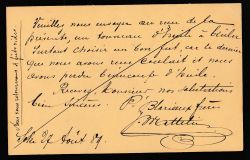 Veuillez nous envoyer au reçu de la
présente un tonneau d'huile à brûler
Surtout choisir un bon fut, car le dernier
que nous avons reçu coulait et nous
avons perdu beaucoup d'huile.
Recevez Monsieur nos salutations
bien sincères.
P. frères
27 Août 87.